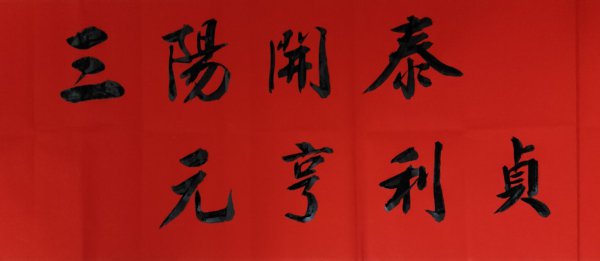 三陽開泰
元亨利貞